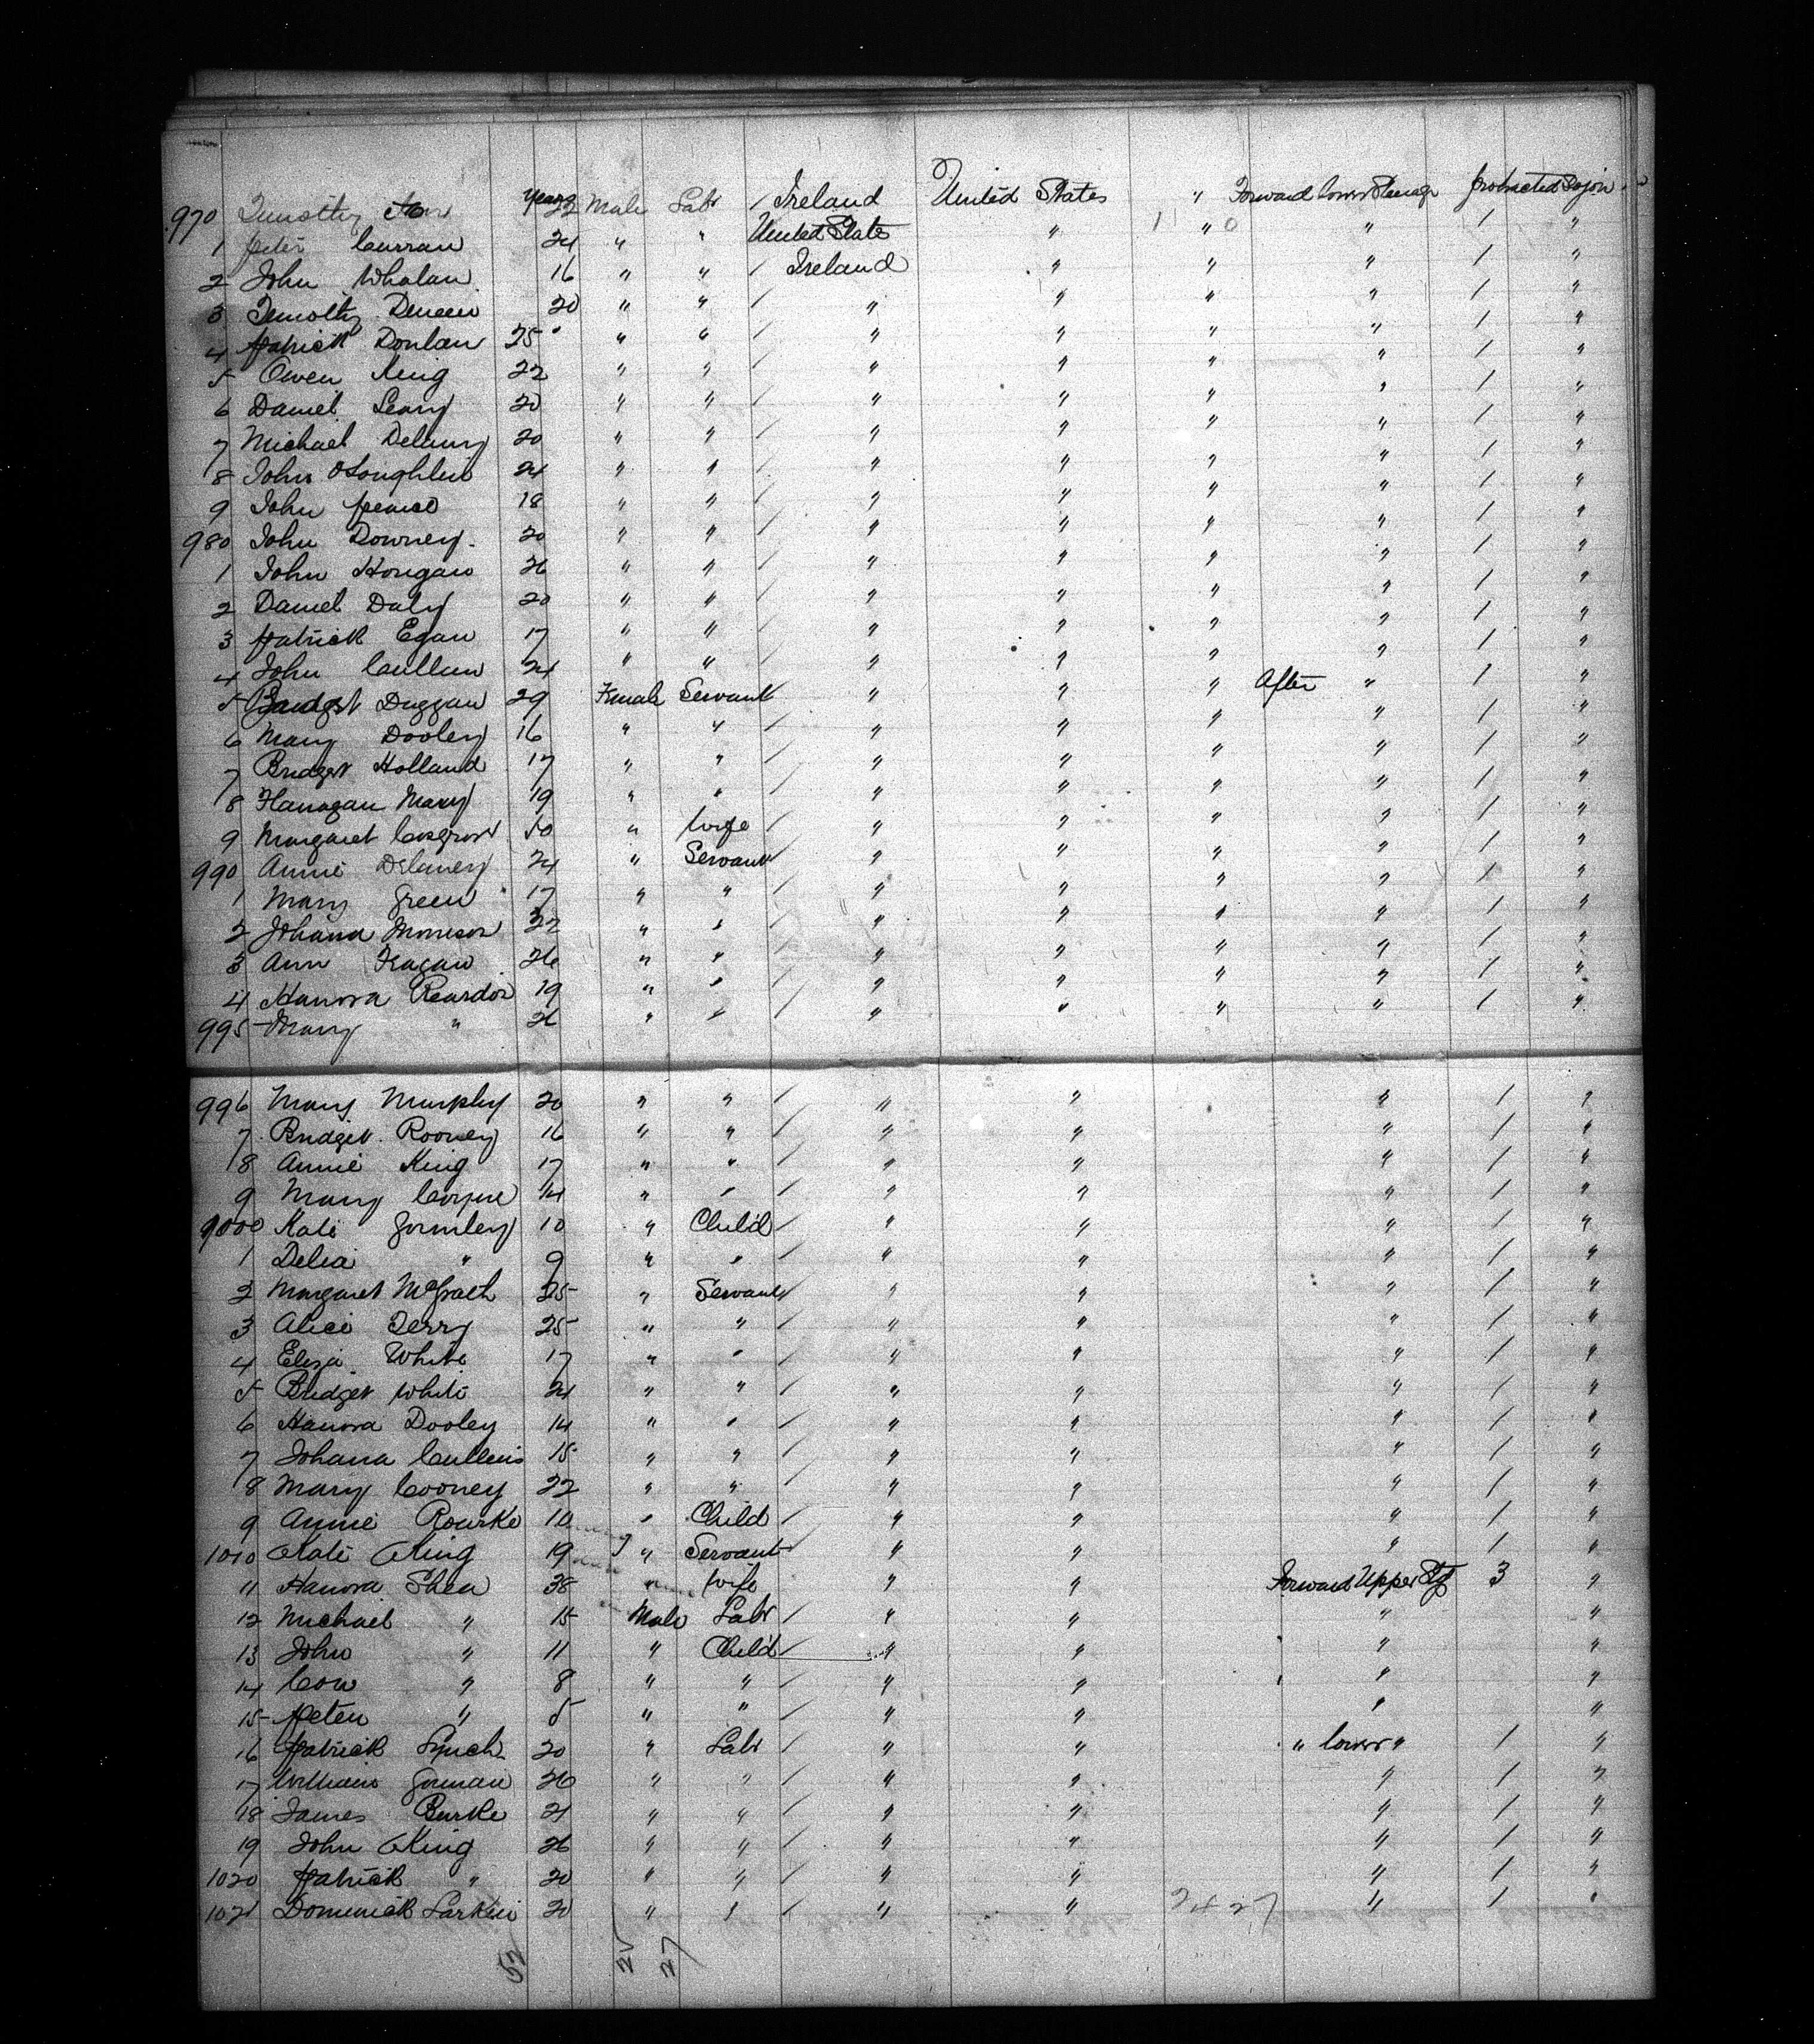 970 Timothy Years 22 Male Labr / Ireland United States " Forward lower Steerage protracted Sojourn
1 Peter Curran 24 " " United States " 1 " 0 " / "
2 John Whalan 16 " " / Ireland " " " / "
3 Timothy Deneen 20 " " / " " " " / "
4 Patrick Donlan 25 " " / " " " " / "
5 Owen King 22 " " / " " " " / "
6 Daniel Leary 20 " " / " " " " / "
7 Michael Delany 20 " " / " " " " / "
8 John OLoughlin 24 " " / " " " " / "
9 John Pearce 18 " " / " " " " / "
980 John Downey 20 " " / " " " " / "
1 John Hongan 26 " " / " " " " / "
2 Daniel Daly 20 " " / " " " " / "
3 Patrick Egan 17 " " / " " " " / "
4 John Cullun 24 " " / " " " " / "
5 Bridget Duggan 29 Female Servant " " " After " / "
6 Mary Dooley 16 " " / " " " " / "
7 Bridget Holland 17 " " / " " " " / "
8 Flanagan Mary 19 " " / " " " " / "
9 Margaret Cosgrove 50 " Wife / " " " " / "
990 Annie Delaney 24 " Servant / " " " " / "
1 Mary Green 17 " " / " " " " / "
2 Johana Morrison 22 " " / " " " " / "
3 Ann Fragan 26 " " / " " " " / "
4 Hanora Reardon 19 " " / " " " " / "
995 Mary " 26 " " / " " " " / "
996 Mary Murphy 20 " " / " " " / "
7 Bridget Rooney 16 " " / " " " / "
8 Annie King 17 " " / " " " / "
9 Mary Coyne 14 " " / " " " / "
1000 Kate Gormley 10 " Child / " " " / "
1 Delia " 9 " " / " " " / "
2 Margaret McGrath 25 " Servant / " " " / "
3 Alice Terry 25 " " / " " " / "
4 Eliza White 17 " " / " " " / "
5 Bridget White 21 " " / " " " / "
6 Hanora Dooley 14 " " / " " " / "
7 Johana Cullens 15 " " / " " " / "
8 Mary Cooney 22 " " / " " " / "
9 Annie Rourke 10 " Child / " " " / "
1010 Kate King 19 " Servant / " " " / "
11 Hanora Shea 38 " Wife " " Forward Upper Stg 3 "
12 Michael " 15 Male Labr / " " " "
13 John " 11 " Child / " " " "
14 Con " 8 " " / " " " "
15 Peter " 5 " " / " " " "
16 Patrick Lynch 20 " Labr / " " " lower " / "
17 William Gorman 26 " " / " " " / "
18 James Burke 21 " " / " " " / "
19 John King 26 " " / " " " / "
1020 Patrick " 20 " " / " " " / "
1021 Dominick Larkin 20 " " " " 24 27 " / "
52 25 27